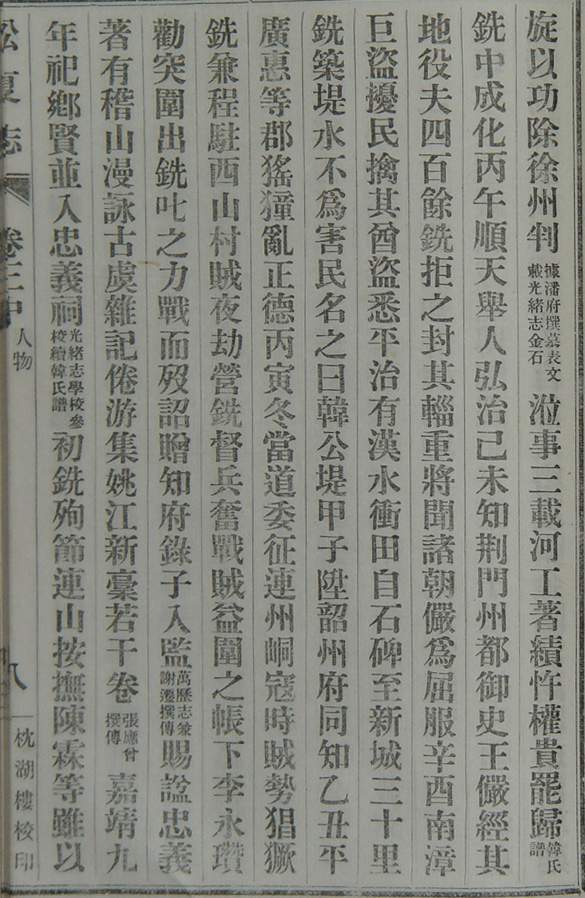 旋以功除徐州判據潘府撰墓表文載光緒志金石涖事三載河工著績忤權貴罷歸韓氏譜
銑中成化丙午順天舉人弘治己未知荆門州都御史王儼經其
地役夫四百餘銑拒之封其輜重將聞諸朝儼爲屈服辛酉南漳
巨盜擾民擒其酋盜悉平治有漢水衝田自石碑至新城三十里
銑築堤水不爲害民名之曰韓公堤甲子陞韶州府同知乙丑平
廣惠等郡猺獞亂正德丙寅冬當道委征連州峒寇時賊勢猖獗
銑兼程駐西山村賊夜劫營銑督兵奮戰賊益圍之帳下李永瓚
勸突圍出銑叱之力戰而歿詔贈知府錄子入監萬歷志兼謝遷撰傳賜諡忠義
著有稽山漫詠古虞雜記倦游集姚江新稾若干卷張應曾撰傳嘉靖九
年祀鄉賢並入忠義祠光緒志學校參校續韓氏譜初銑殉節連山按撫陳霖等雖以
松夏志 卷三中 人物 八 枕湖樓校印